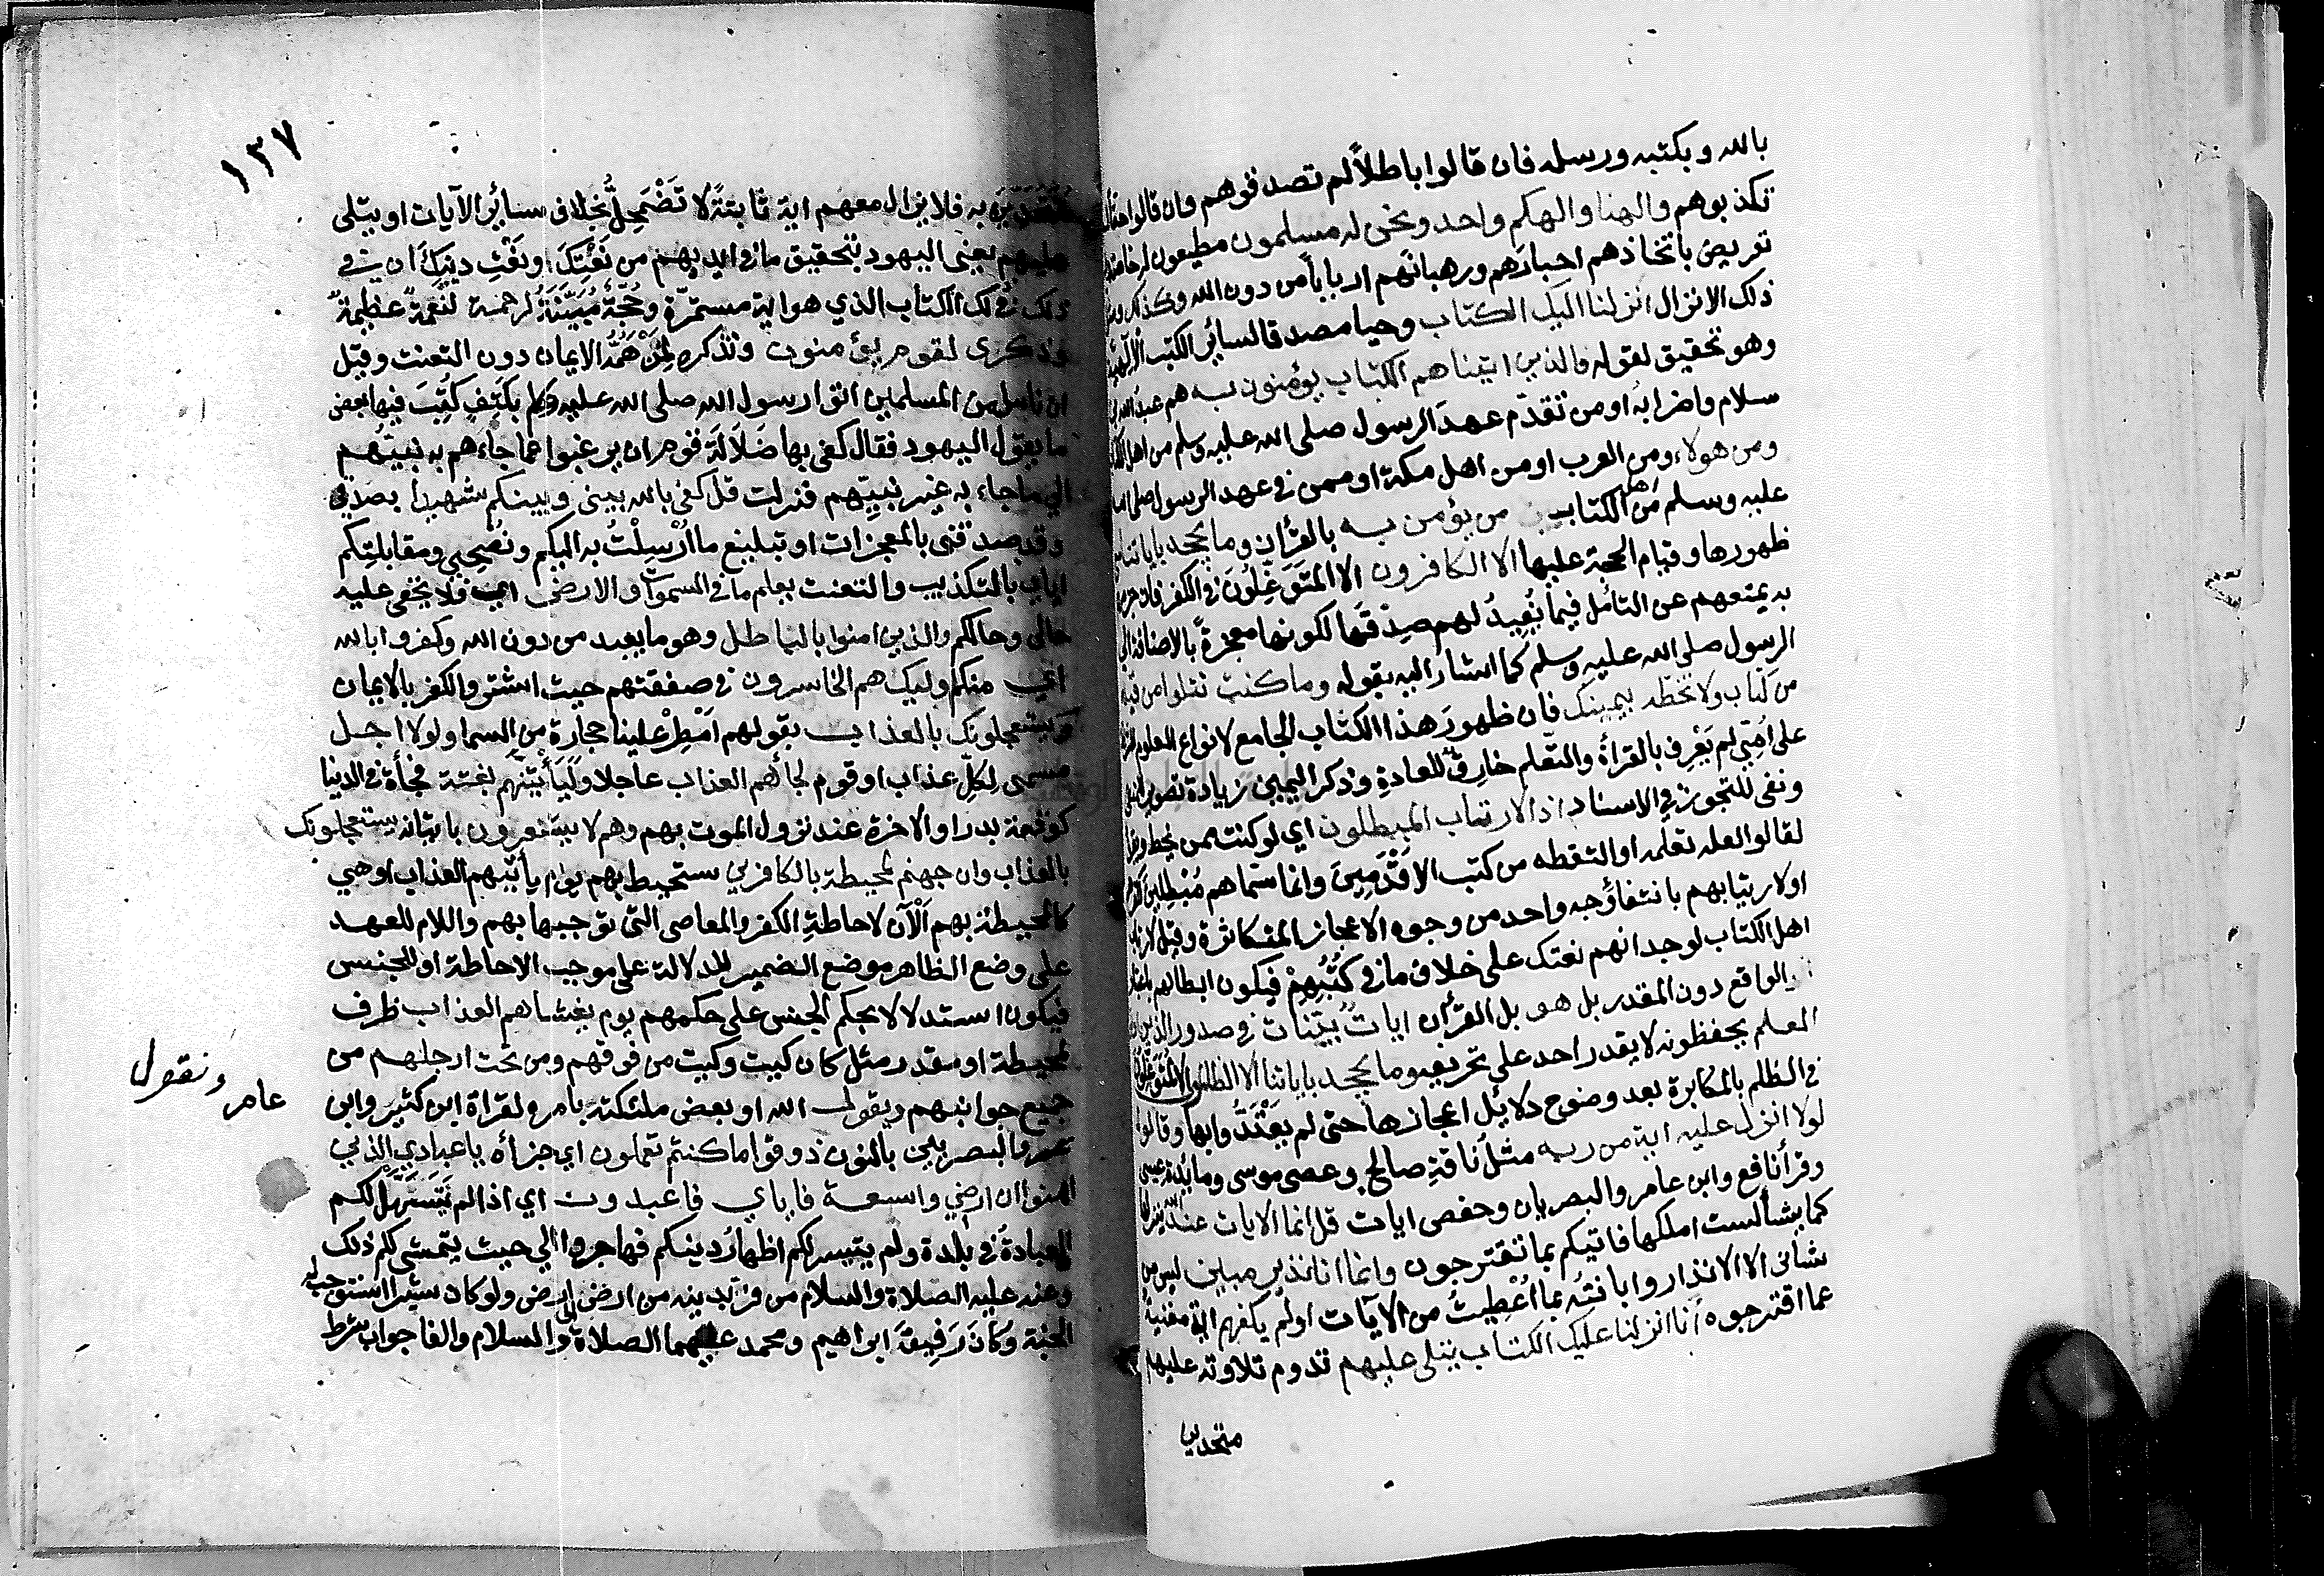 بالله وبكتبه ورسله فان قالوا باطلاً لم تصدقوهم وان قالوا حقا لم
تكذبوهم والهنا والهكم واحد ونحن له مسلمون مطيعون له خاصة
تعريض باتخاذهم احبارَهم ورهبانهم اربابا من دون الله وكذلك
ذلك الانزال انزلنا اليك الكتاب وحيا مصدقا لسائر الكتب الالهية
وهو تحقيق لقوله فالذين اتيناهم الكتاب يؤمنون به هم عبد الله بن
سلام واضرابُه او من تقدّم عهدَ الرسول صلى الله عليه وسلم من اهل الكتاب
ومن هولاء ومن العرب او من اهل مكة او ممن في عهد الرسول صلى الله
عليه وسلم من اهل الكتابين من يؤمن به بالقرأن وما يجحد باياتنا
ظهورها وقيام الحجة عليها الا الكافرون الا المتوَغِّلُونَ في الكفر فان
به يمنعهم عن التأمل فيما يُفِيدُ لهم صِدقَها لكونها معجزةً بالاضافة الى
الرسول صلى الله عليه وسلم كما اشار اليه بقوله وما كنت تتلوا من قبله
من كتاب ولا تخطه بيمينك فان ظهورَ هذا الكتاب الجامع لانواع العلوم
على اُمّيّ لم يَعْرِف بالقرأة والتعلم خارق للعادةِ وذكر اليمين زيادة تصوير
ونفي للتجوز في الاسناد اذا لارتاب المبطلون اي لو كنت ممن يخط
لقالوا لعله تعلمه او التقطه من كتب الاقْدَمِينَ وانما سماهم مُبْطِلين
او لارتيابهم بانتفاء وجه واحد من وجوه الاعجاز المتكاثرة وقيل لارتاب
اهل الكتاب لوجدانهم نعتك على خلاف ما في كُتُبِهِمْ فيكون ابطالهم
الواقع دون المقدر بل هو بل القرأن اياتٌ بيّنات في صدور الذين
العلم يحفظونه لا يقدر احد على تحريفه وما يجحد باياتنا الا الظالمون
في الظلم بالمكابرة بعد وضوح دلائل اعجازها حتى لم يَعْتَدُّوا بها وقالوا
لولا انزل عليه اية من ربه مثل ناقةِ صالح وعصى موسى ومائدة عيسى
وقرأ نافع وابن عامر والبصريان وحفص ايات قل انما الايات عند الله ينزلها
كما يشأ لست املكها فاتيكم بما تقترحون وانما انا نذير مبين ليس من
شانى الا الانذار وابانتُه بما اُعْطِيتُ من الآيات اولم يكفهم اية مغنية
عما اقترحوه انا انزلنا عليك الكتاب يتلى عليهم تدوم تلاوته عليهم
متحدين
١٣٧
مُتَحَدّينَ به فلا يزال معهم اية ثابتةً لا تَضْمَحِلُّ بخلاف سائر الآيات او يتلى
عليهم يعنى اليهود بتحقيق ما في ايديهم من نَعْتِكَ ونَعْتِ دينِكَ ان في
ذلك في ذلك الكتاب الذي هو اية مستمرّة وحُجّةٌ مُبَيّنَةٌ لرحمة لنعمةً عظيمةً
وذكرى لقوم يؤمنون وتذكرة لمن هَمُّهُ الايمان دون التعنت وقيل
ان ناسا من المسلمين اتوا رسول الله صلى الله عليه وسلم بكَتِفٍ كُتِبَ فيها بعض
ما يقول اليهود فقال كفى بها ضَلاَلَةَ قوم ان يرغبوا عما جاءهم به نبيّهم
الى ما جاء به غير نبيّهم فنزلت قل كفى بالله بيني وبينكم شهيدا بصدقي
وقد صدّقنى بالمعجزات او تبليغ ما اُرْسِلْتُ به اليكم ونُصْحِي ومقابلتِكم
اياي بالتكذيب والتعنت يعلم ما في السموات والارض فلا يخفى عليه
حالى وحالكم والذين امنوا بالباطل وهو ما يعبد من دون الله وكفروا بالله
منكم اوليك هم الخاسرون في صفقتهم حيث اشتروا الكفر بالايمان
ويستعجلونك بالعذاب بقولهم اَمْطِرْ علينا حجارة من السما ولولا اجل
مسمى لكلّ عذاب او قوم لجاءهم العذاب عاجلا ولَيَأتِيَنّهم بغتة فجأة في الدنيا
كوقعة بدر او الاخرة عند نزول الموت بهم وهم لا يشعرون باتيانه يستعجلونك
بالعذاب وان جهنم لمحيطة بالكافرين ستحيط بهم يوم يأتيهم العذاب او هي
كالمحيطة بهم اَلْآن لاحاطةِ الكفر والمعاصى التى توجبها بهم واللام للعهد
على وضع الظاهر موضع الضمير للدلالة على موجب الاحاطة او للجنس
فيكون استدلالا بحكم الجنس على حكمهم يوم يغشاهم العذاب ظرف
لمحيطة او مقدر مثل كان كيت وكيت من فوقهم ومن تحت ارجلهم من
جميع جوانبهم ويقول الله او بعض ملئكته بامره لقراة ابن كثير وابن
عامر والبصريين بالنون ذوقوا ما كنتم تعملون اي جزأه يا عبادي الذين
امنوا ان ارضي واسعة فاياي فاعبدون اي اذا لم تَتَسَهّلْ لكم
العبادةُ في بلدة ولم يتيسر لكم اظهارُ دينكم فهاجروا الى حيث يتمشى لكم ذلك
وعنه عليه الصلاة والسلام من فرّ بدينه من ارض الى ارض ولو كان شبرا استوجب له
الجنة وكَانَ رَفِيقَ ابراهيم ومحمد عليهما الصلاة والسلام والفا جواب شرط
عامر ونقول